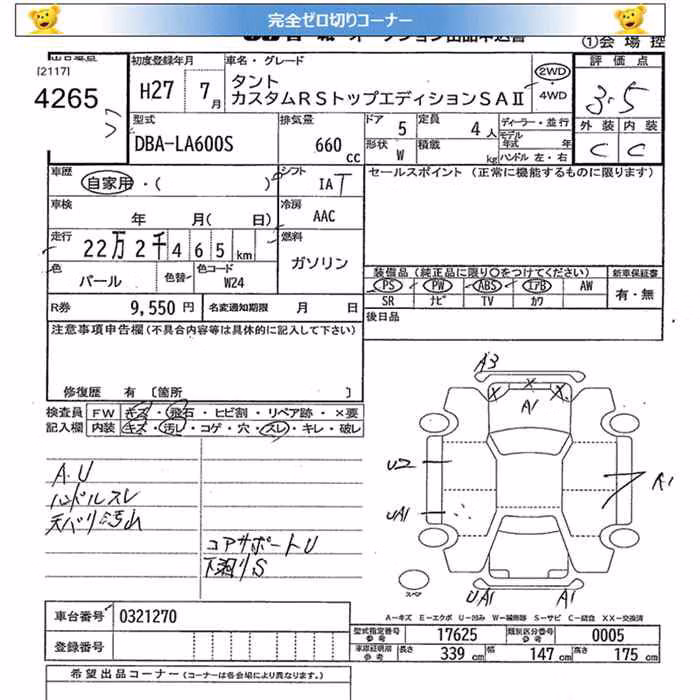 完全ゼロ切りコーナー
オークション出品申込書
①会場控
[2117]
4265
初度登録年月
H27 7月
車名・グレード
タント
カスタムRSトップエディションSAⅡ
2WD
4WD
評価点
3.5
外装 内装
C C
型式
DBA-LA600S
排気量
660 CC
ドア 5
形状 W
定員 4人
積載 kg
ディーラー・並行
モデル
年式 年
ハンドル 左・右
車歴
自家用・( )
シフト
IAT
セールスポイント (正常に機能するものに限ります)
車検
年 月( 日)
冷房
AAC
走行
22万2千465km
燃料
ガソリン
色
パール
色替
色コード
W24
装備品(純正品に限り○をつけてください)
PS PW ABS エアB AW
SR ナビ TV カワ
新車保証書
有・無
R券 9,550円
名変通知期限 月 日
後日品
注意事項申告欄(不具合内容等は具体的に記入して下さい)
修復歴 有 [箇所 ]
検査員 FW キズ・飛石・ヒビ割・リペア跡・×要
記入欄 内装 キズ・汚レ・コゲ・穴・スレ・キレ・破レ
A.U
ハンドルスレ
天バリ汚
コアサポートU
下廻りS
A3
A1
U2
UA1
A1
スペア
UA1
A1
A-キズ E-エクボ U-凹み S-サビ XX-交換済
車台番号 0321270
登録番号
型式指定番号
参考
17625
類別区分番号
参考
0005
車庫証明用
参考
長さ 339 cm 幅 147 cm 高さ 175 cm
希望出品コーナー(コーナーは各会場により異なります。)